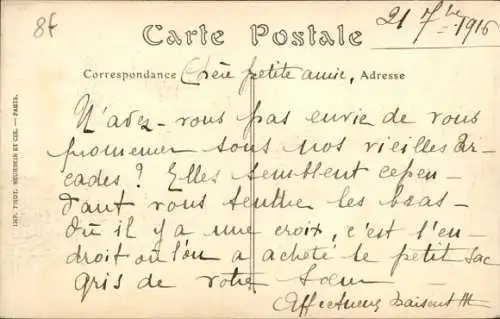 8f
21 7bre 1916
Carte Postale
Correspondance Chère petite amie, Adresse
N'avez-vous pas envie de vous
promener sous nos vieilles Ar-
cades? Elles semblent cepen-
dant vous tendre les bras -
Où il y a une croix, c'est l'en-
droit où l'on a acheté le petit sac
gris de votre sœur -
Affectueux baisers
IMP. PHOT. NEURDEIN ET CIE. — PARIS.